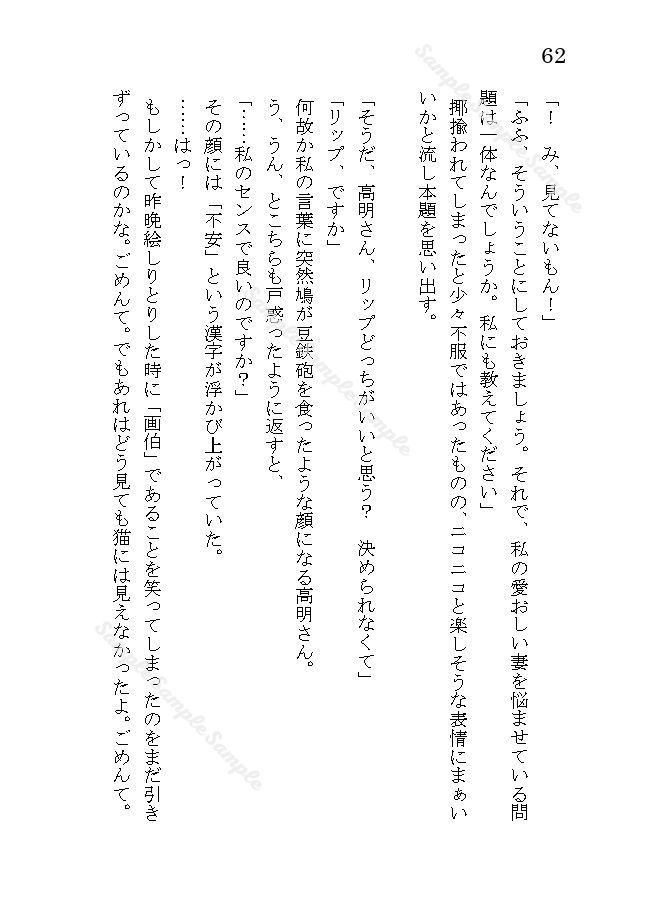 62
「！　み、見てないもん！」
「ふふ、そういうことにしておきましょう。それで、私の愛おしい妻を悩ませている問
題は一体なんでしょうか。私にも教えてください」
揶揄われてしまったと少々不服ではあったものの、ニコニコと楽しそうな表情にまぁい
いかと流し本題を思い出す。
「そうだ、高明さん、リップどっちがいいと思う？　決められなくて」
「リップ、ですか」
何故か私の言葉に突然鳩が豆鉄砲を食ったような顔になる高明さん。
う、うん、とこちらも戸惑ったように返すと、
「……私のセンスで良いのですか？」
その顔には「不安」という漢字が浮かび上がっていた。
……はっ！
もしかして昨晩絵しりとりした時に「画伯」であることを笑ってしまったのをまだ引き
ずっているのかな。ごめんて。でもあれはどう見ても猫には見えなかったよ。ごめんて。
SampleSampleSample
SampleSampleSample
SampleSampleSample